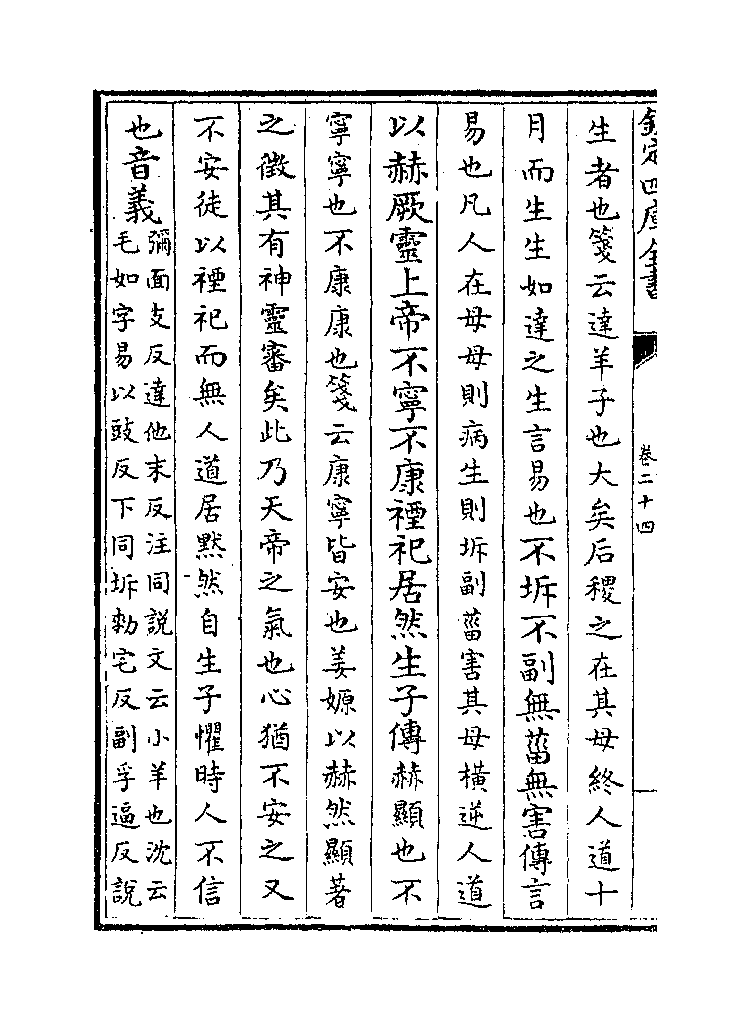 欽定四庫全書
卷二十四
生者也箋云達羊子也大矣后稷之在其母終人道十
月而生生如達之生言易也不坼不副無菑無害傳言
易也凡人在母母則病生則坼副菑害其母橫逆人道
以赫厥靈上帝不寧不康禋祀居然生子傳赫顯也不
寧寧也不康康也箋云康寧皆安也姜嫄以赫然顯著
之徵其有神靈審矣此乃天帝之氣也心猶不安之又
不安徒以禋祀而無人道居黙然自生子懼時人不信
也音義
彌面支反達他末反注同說文云小羊也沈云
毛如字易以豉反下同坼勑宅反副孚逼反說